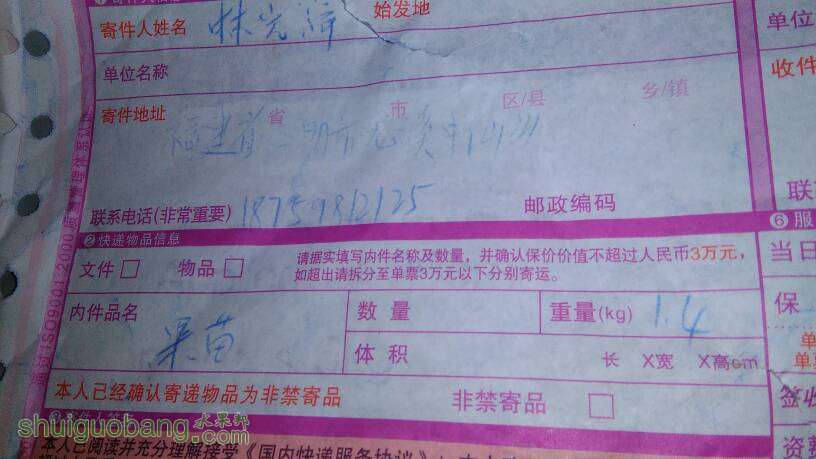 寄件人姓名 林 始发地
单位名称 单位
寄件地址 省 市 区/县 乡/镇 收件
福建省 明市
联系电话(非常重要) 18759812125 邮政编码 联
❷ 快递物品信息 ❻ 服
文件 物品 请据实填写内件名称及数量，并确认保价价值不超过人民币3万元，
如超出请拆分至单票3万元以下分别寄运。 当日
内件品名 数量 重量(kg) 1.4 保
果苗 体积 长 X宽 X高cm
本人已经确认寄递物品为非禁寄品 非禁寄品 签收
shuiguobang.com 水果邦
本人已阅读并充分理解接受《国内快递服务协议》 资费
ISO9001:2000